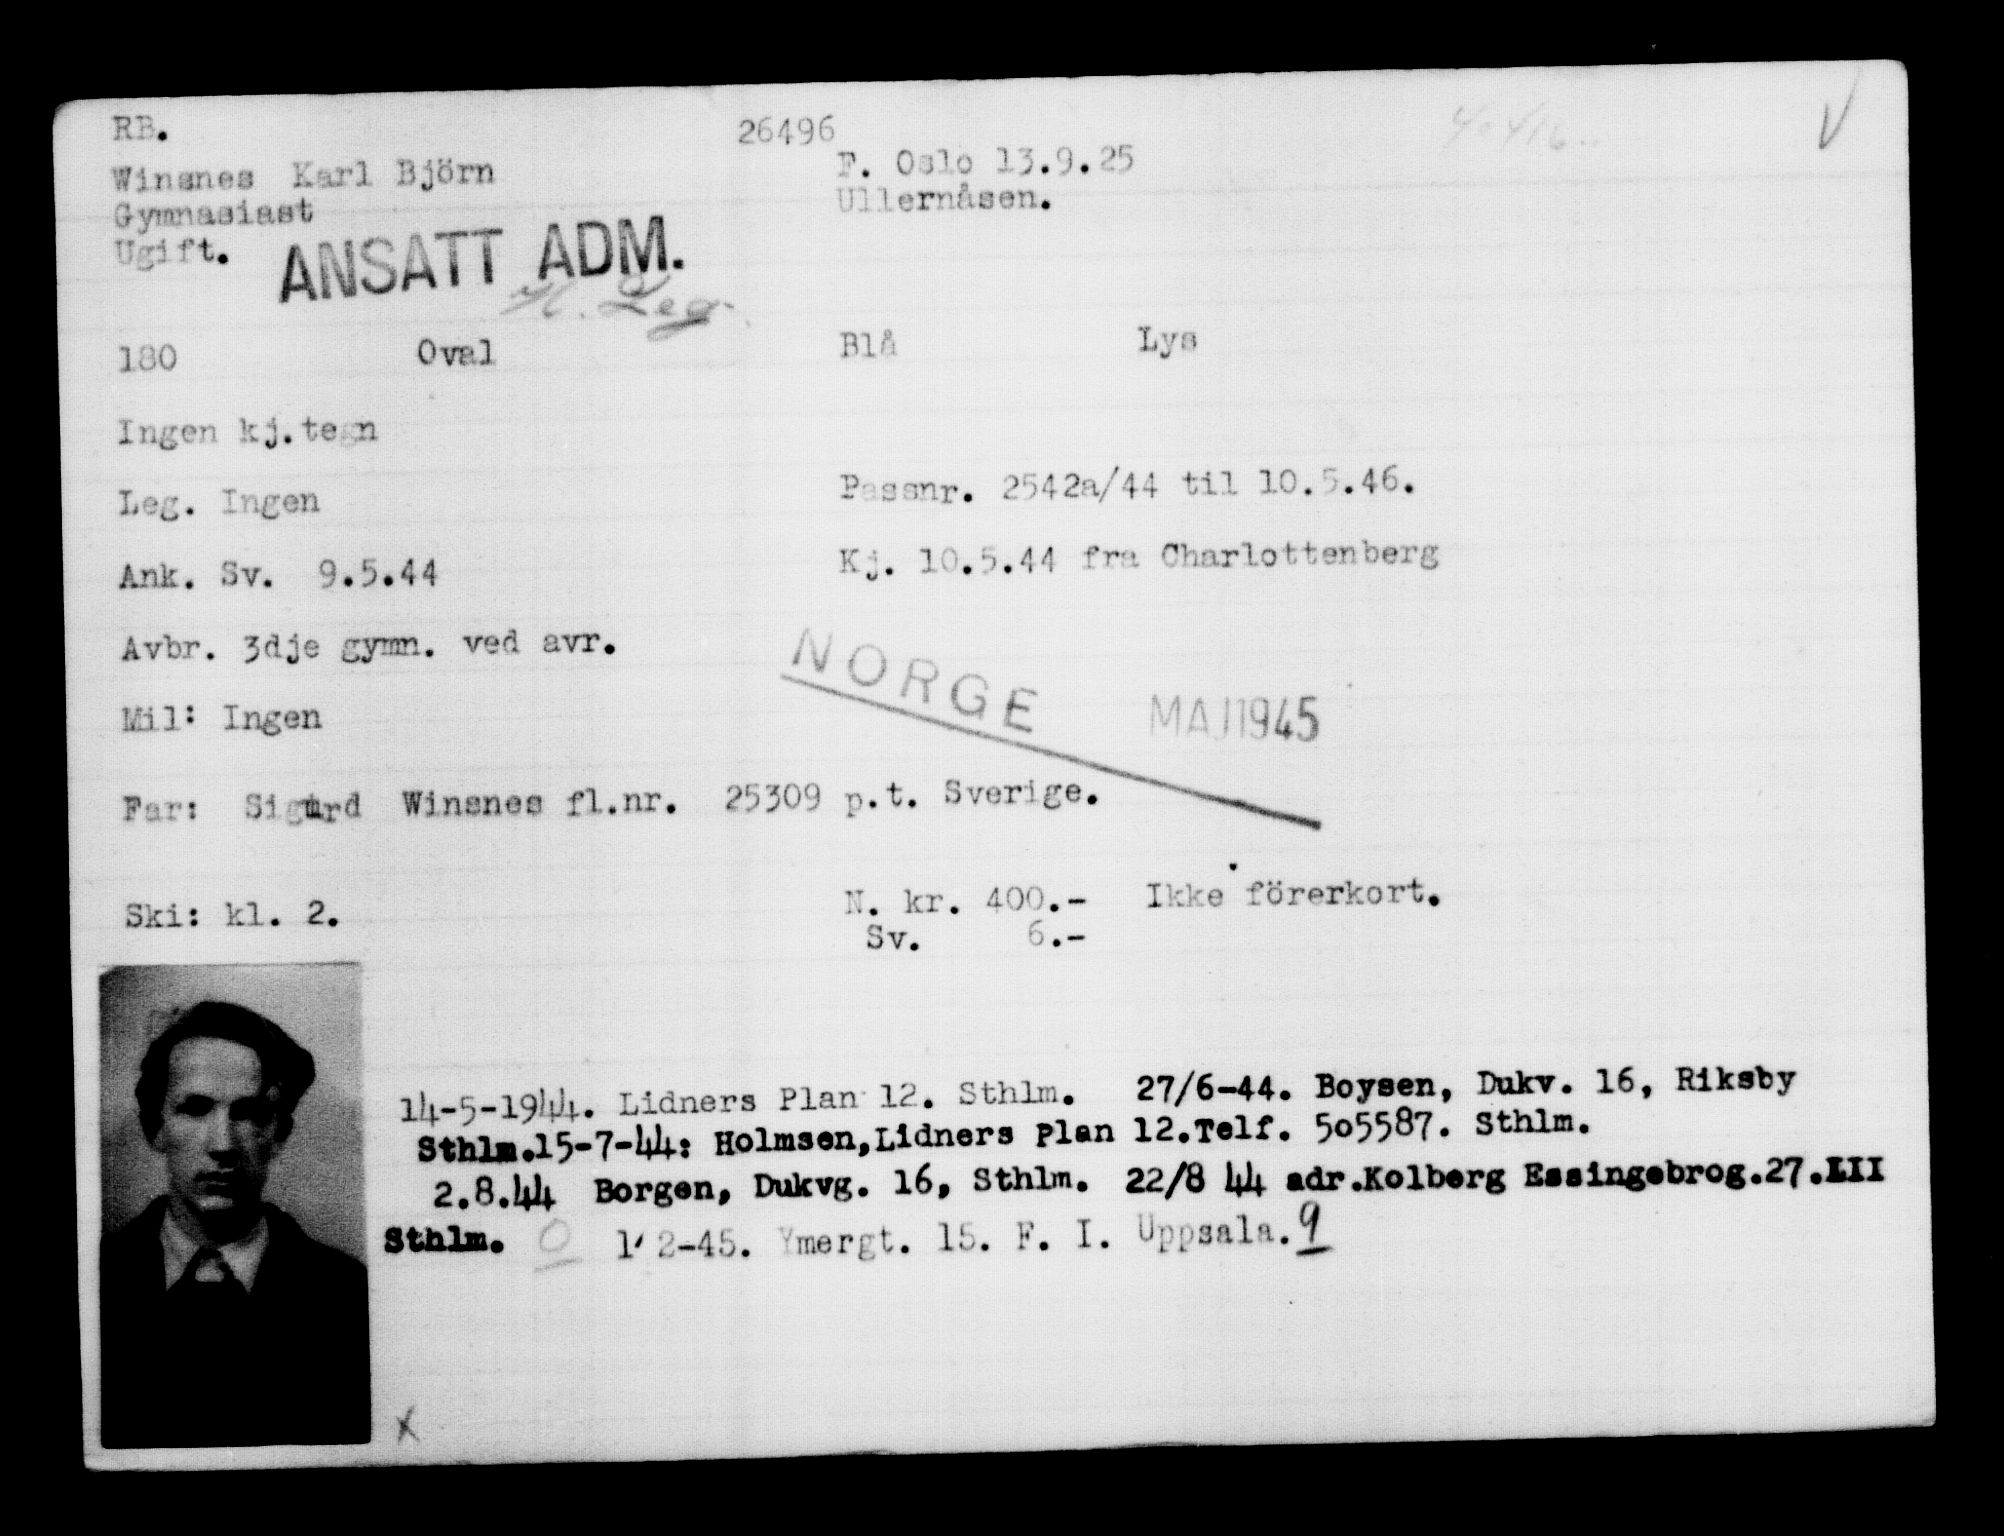 RB.
26496
Winsnes Karl Björn
F. Oslo 13.9.25
Gymnasiast
Ullernåsen.
Ugift.
ANSATT ADM.
180 Oval Blå Lys
Ingen kj.tegn
Leg. Ingen
Passnr. 2542a/44 til 10.5.46.
Ank. Sv. 9.5.44
Kj. 10.5.44 fra Charlottenberg
Avbr. 3dje gymn. ved avr.
NORGE
MAJ 1945
Mil: Ingen
Far: Sigurd Winsnes fl.nr. 25309 p.t. Sverige.
Ski: kl. 2.
N. kr. 400.- Ikke förerkort.
Sv. 6.-
14-5-1944. Lidners Plan 12. Sthlm. 27/6-44. Boysen, Dukv. 16, Riksby
Sthlm.15-7-44: Holmsen,Lidners Plan 12.Telf. 505587. Sthlm.
2.8.44 Borgen, Dukvg. 16, Sthlm. 22/8 44 adr.Kolberg Essingebrog.27.III
Sthlm. O 1/2-45. Ymergt. 15. F. I. Uppsala. 9
x